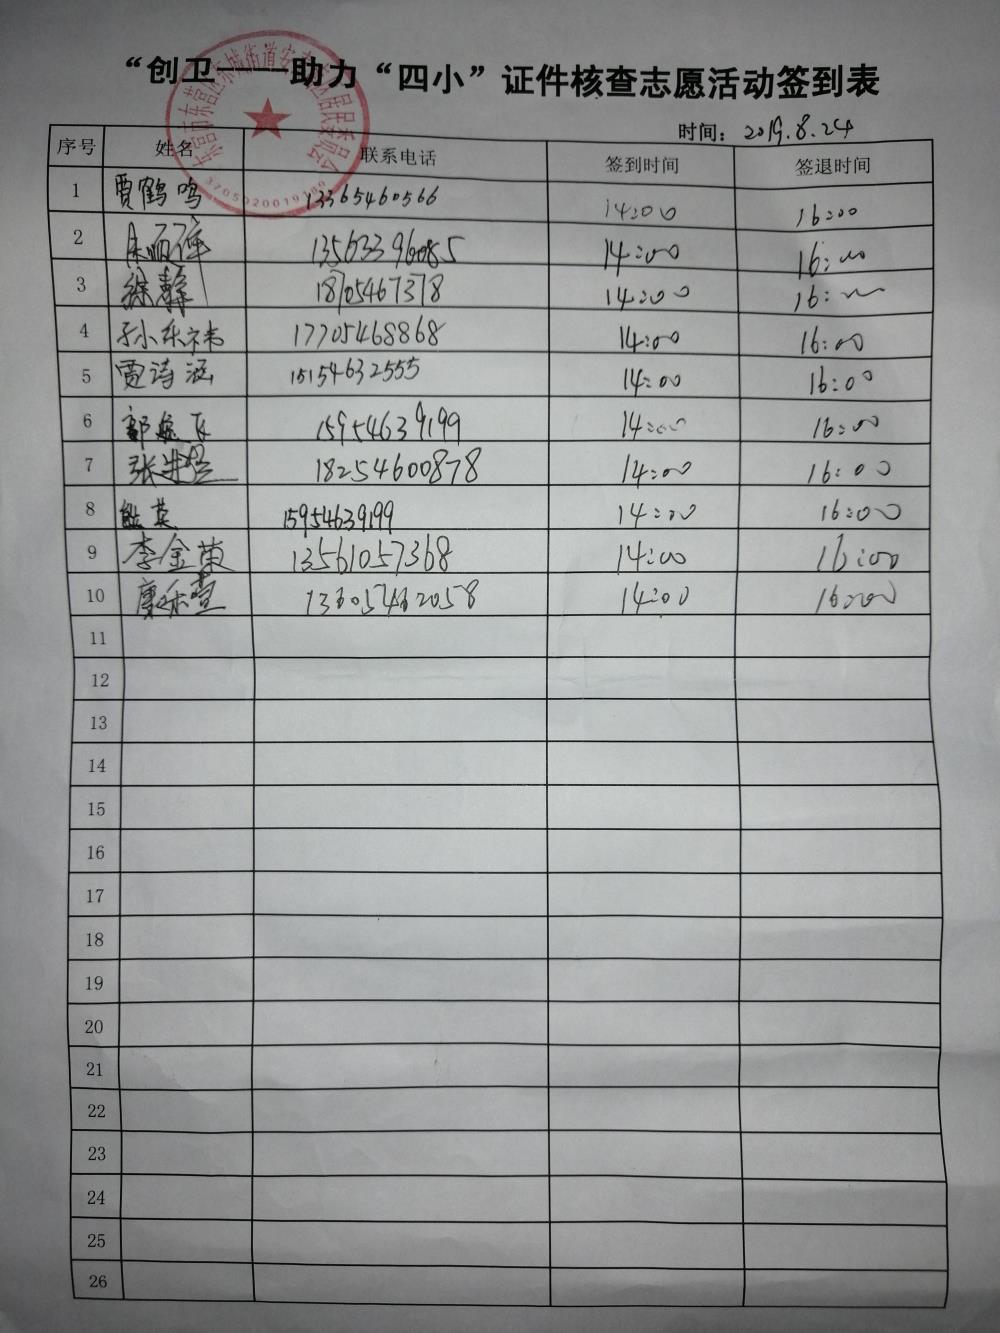 “创卫——助力“四小”证件核查志愿活动签到表
时间：2019.8.24
序号 姓名 联系电话 签到时间 签退时间
1 贾鹤鸣 13365460566 14:00 16:00
2 13563396085 14:00 16:00
3 徐静 18705467378 14:00 16:00
4 17705468868 14:00 16:00
5 贾诗涵 15154632555 14:00 16:00
6 15954639199 14:00 16:00
7 18254600878 14:00 16:00
8 熊英 15954639199 14:00 16:00
9 李金荣 13561057368 14:00 16:00
10 14:00 16:00
11
12
13
14
15
16
17
18
19
20
21
22
23
24
25
26